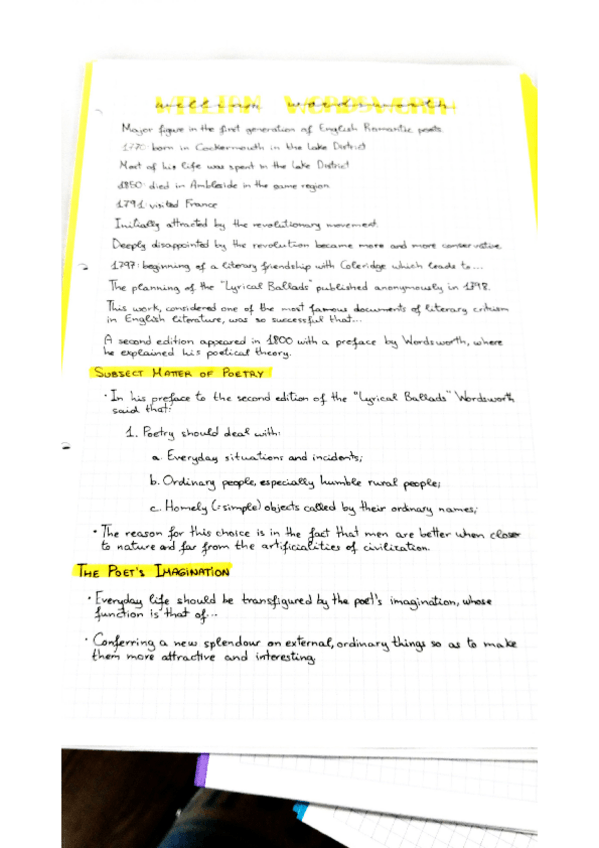 William Wordsworth
Major figure in the first generation of English Romantic poets.
1770: born in Cockermouth in the Lake District
Most of his life was spent in the Lake District
1850: died in Ambleside in the same region
1791: visited France
Initially attracted by the revolutionary movement.
Deeply disappointed by the revolution became more and more conservative
1797: beginning of a literary friendship with Coleridge which leads to...
The planning of the "Lyrical Ballads" published anonymously in 1798.
This work, considered one of the most famous documents of literary critism
in English literature, was so successful that...
A second edition appeared in 1800 with a preface by Wordsworth, where
he explained his poetical theory.
SUBSECT MATTER OF POETRY
• In his preface to the second edition of the "Lyrical Ballads" Wordsworth
said that:
1. Poetry should deal with:
a. Everyday situations and incidents;
b. Ordinary people, especially humble rural people;
c. Homely (=simple) objects called by their ordinary names;
• The reason for this choice is in the fact that men are better when closer
to nature and far from the artificialities of civilization.
THE POET'S IMAGINATION
• Everyday life should be transfigured by the poet's imagination, whose
function is that of...
• Conferring a new splendour on external, ordinary things so as to make
them more attractive and interesting.